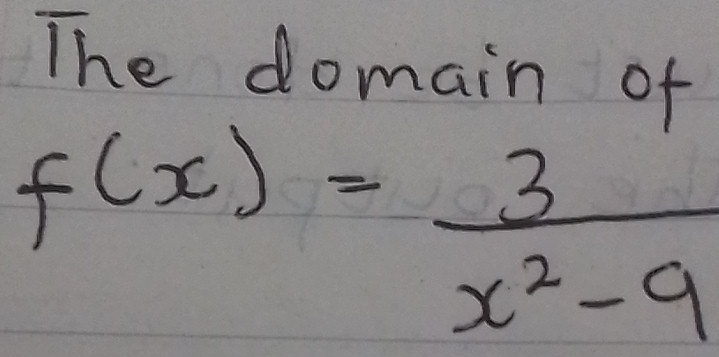 The domain of
f(x) = 3/(x² - 9)